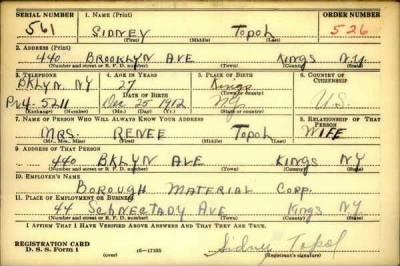 SERIAL NUMBER 1. NAME (Print) ORDER NUMBER
561 SIDNEY Topol 526
(First) (Middle) (Last)
2. ADDRESS (Print)
440 BROOKLYN AVE KINGS N.Y.
(Number and street or R. F. D. number) (Town) (County) (State)
3. TELEPHONE 4. AGE IN YEARS 5. PLACE OF BIRTH 6. COUNTRY OF CITIZENSHIP
BKLYN. NY 27 Kings
DATE OF BIRTH (Town or county)
PR4-5211 Dec 25 1912 NY U.S.
(Exchange) (Number) (Mo.) (Day) (Yr.) (State or country)
7. NAME OF PERSON WHO WILL ALWAYS KNOW YOUR ADDRESS 8. RELATIONSHIP OF THAT PERSON
MRS. RENEE Topol WIFE
(Mr., Mrs., Miss) (First) (Middle) (Last)
9. ADDRESS OF THAT PERSON
440 BKLYN AVE KINGS NY
(Number and street or R. F. D. number) (Town) (County) (State)
10. EMPLOYER'S NAME
BOROUGH MATERIAL CORP.
11. PLACE OF EMPLOYMENT OR BUSINESS
44 SCHNECTADY AVE KINGS NY
(Number and street or R. F. D. number) (Town) (County) (State)
I AFFIRM THAT I HAVE VERIFIED ABOVE ANSWERS AND THAT THEY ARE TRUE.
REGISTRATION CARD
D. S. S. Form 1 (over) 16-17105 Sidney Topol
(Registrant's signature)